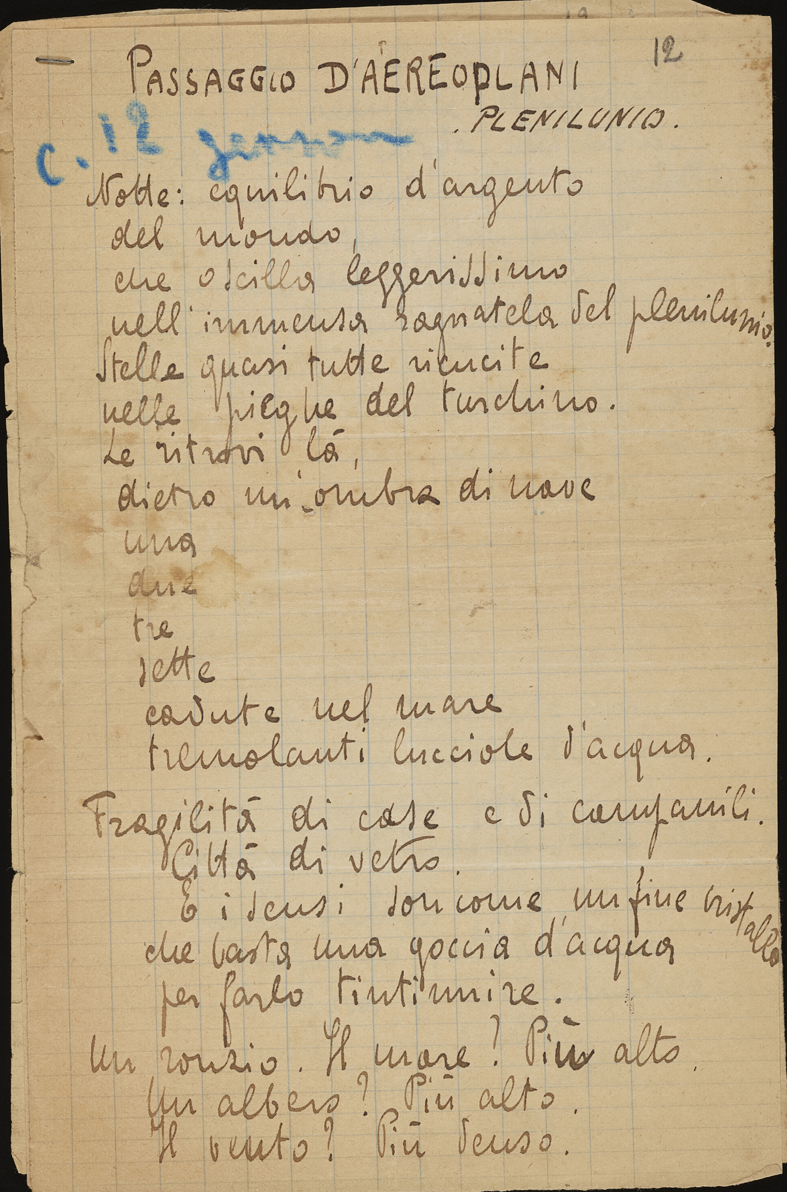 12
PASSAGGIO D'AEREOPLANI
. PLENILUNIO.
C. 12
Notte: equilibrio d'argento
del mondo,
che oscilla leggerissimo
nell'immensa ragnatela del plenilunio.
Stelle quasi tutte ricucite
nelle pieghe del turchino.
Le ritrovi là,
dietro un'ombra di nave
una
due
tre
sette
cadute nel mare
tremolanti lucciole d'acqua.
Fragilità di case e di campanili.
Città di vetro.
E i sensi son come un fine cristallo
che basta una goccia d'acqua
per farlo tintinnire.
Un ronzio. Il mare? Più alto.
Un albero? Più alto.
Il vento? Più denso.